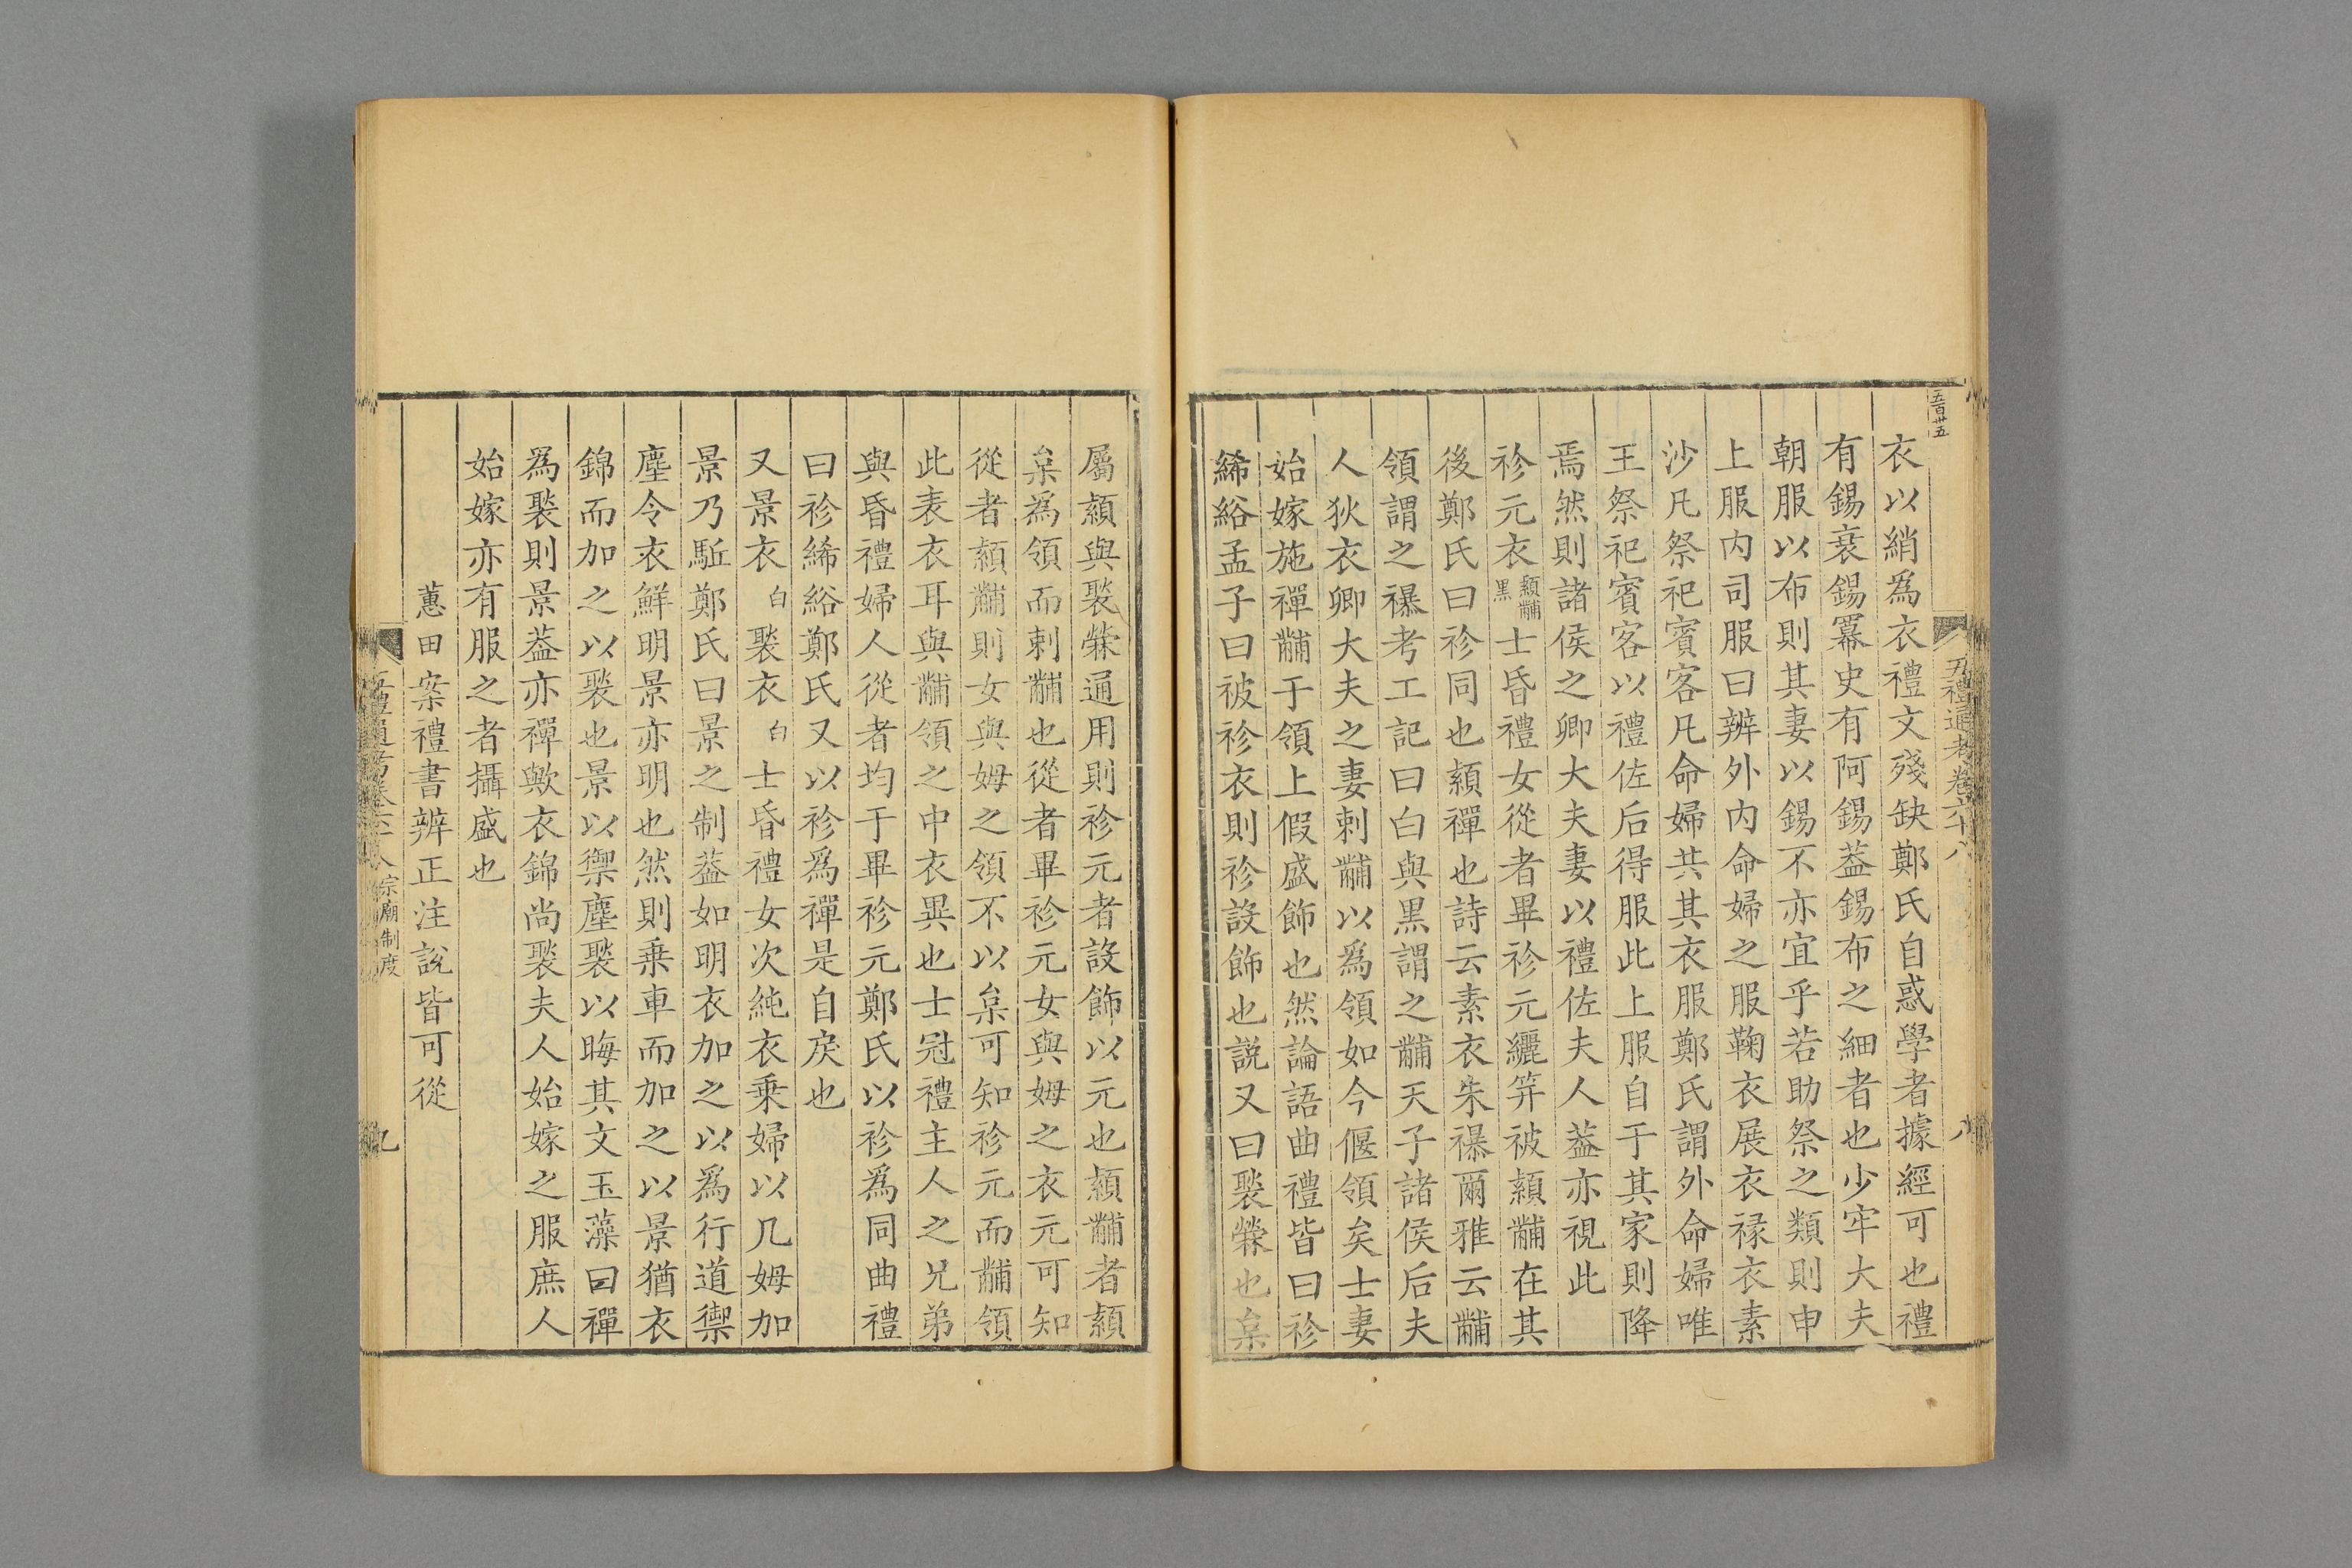 五百卅五
五禮通考卷六十八 八
衣以綃爲衣禮文殘缺鄭氏自惑學者據經可也禮
有錫衰錫冪史有阿錫葢錫布之細者也少牢大夫
朝服以布則其妻以錫不亦宜乎若助祭之類則申
上服内司服曰辨外内命婦之服鞠衣展衣褖衣素
沙凡祭祀賓客凡命婦共其衣服鄭氏謂外命婦唯
王祭祀賓客以禮佐后得服此上服自于其家則降
焉然則諸侯之卿大夫妻以禮佐夫人葢亦視此
袗元衣纇黼黑士昏禮女從者畢袗元纚筓被纇黼在其
後鄭氏曰袗同也纇禪也詩云素衣朱襮爾雅云黼
領謂之襮考工記曰白與黑謂之黼天子諸侯后夫
人狄衣卿大夫之妻刺黼以爲領如今偃領矣士妻
始嫁施禪黼于領上假盛飾也然論語曲禮皆曰袗
絺綌孟子曰被袗衣則袗設飾也説又曰褧檾也枲
屬纇與褧檾通用則袗元者設飾以元也纇黼者纇
枲爲領而刺黼也從者畢袗元女與姆之衣元可知
從者纇黼則女與姆之領不以枲可知袗元而黼領
此表衣耳與黼領之中衣異也士冠禮主人之兄弟
與昏禮婦人從者均于畢袗元鄭氏以袗爲同曲禮
曰袗絺綌鄭氏又以袗爲禪是自戾也
又景衣白褧衣白士昏禮女次純衣乘婦以几姆加
景乃駈鄭氏曰景之制葢如明衣加之以爲行道禦
塵令衣鮮明景亦明也然則乘車而加之以景猶衣
錦而加之以褧也景以禦塵褧以晦其文玉藻曰禪
爲褧則景葢亦禪歟衣錦尚褧夫人始嫁之服庶人
始嫁亦有服之者攝盛也
蕙田案禮書辨正注說皆可從
五禮通考卷六十八 宗廟制度 九